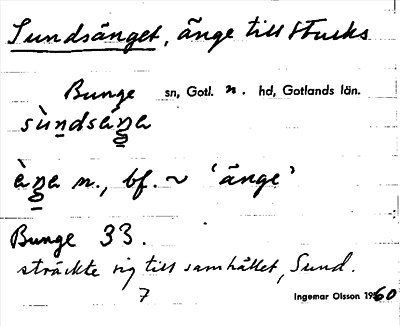 Sundsänget, änge till Stucks
Bunge sn, Gotl. n. hd, Gotlands län.
sùndsáŋa
àŋa n., bf. ~ 'änge'
Bunge 33.
sträckte sig till samhället, Sund.
7
Ingemar Olsson 1960